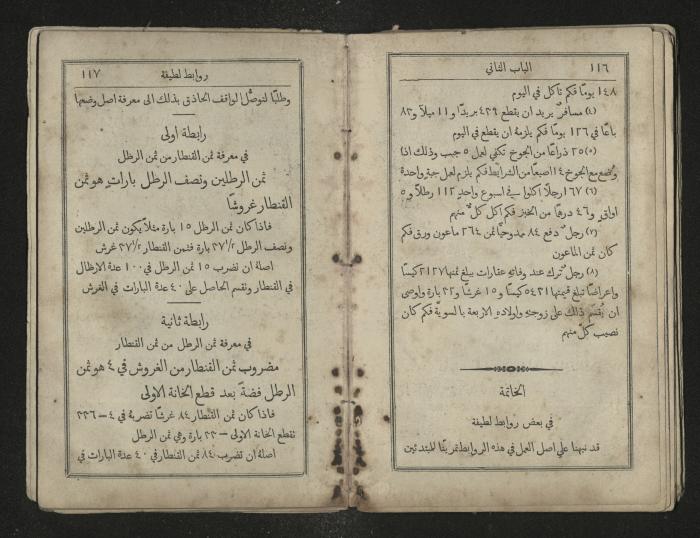 ١١٦
الباب الثاني
١٤٨ يومًا فكم تأكل في اليوم
(٤) مسافرٌ يريد ان يقطع ٤٣٩ بريدًا و١١ ميلاً و٨٣
باعًا في ١٢٦ يومًا فكم يلزمهُ ان يقطع في اليوم
(٥) ٢٥ ذراعًا من الجوخ تكفي لعمل ٥ جبب وذلك اذا
وُضع مع الجوخ ١٤ اصبعًا من الشرايط فكم يلزم لعمل جبة واحدة
(٦) ١٦٧ رجلاً اكلوا في اسبوع واحد ١١٢ رطلاً و٥
اواقٍ و٤٦ درهمًا من الخبز فكم اكل كلٌّ منهم
(٧) رجلٌ دفع ٨٤ ممدوحيًا ثمن ٢٦٤ ماعون ورق فكم
كان ثمن الماعون
(٨) رجلٌ ترك عند وفاتهِ عقارات يبلغ ثمنها ٣١٢٧ كيسًا
واعراضًا تبلغ قيمتها ٥٤٣١ كيسًا و١٥ غرشًا و٢٣ بارة واوصى
ان يُقسَم ذلك على زوجتهِ واولادهِ الاربعة بالسوية فكم كان
نصيب كلٍّ منهم
الخاتمة
في بعض روابط لطيفة
قد نبهنا على اصل العمل في هذه الروابط تمرينًا للمبتدئين
روابط لطيفة
١١٧
وطلبًا لتوصُّل الواقف الحاذق بذلك الى معرفة اصل وضعها
رابطة اولى
في معرفة ثمن القنطار من ثمن الرطل
ثمن الرطلين ونصف الرطل باراتٍ هو ثمن
القنطار غروشًا
فاذا كان ثمن الرطل ١٥ بارة مثلاً يكون ثمن الرطلين
ونصف الرطل ٣٧١/٢ بارة فثمن القنطار ٣٧١/٢ غرش
اصلهُ ان تضرب ١٥ ثمن الرطل في ١٠٠ عدة الارطال
في القنطار وتقسم الحاصل على ٤٠ عدة البارات في الغرش
رابطة ثانية
في معرفة ثمن الرطل من ثمن القنطار
مضروب ثمن القنطار من الغروش في ٤ هو ثمن
الرطل فضةً بعد قطع الخانة الاولى
فاذا كان ثمن القنطار ٨٤ غرشًا تضربهُ في ٤ = ٣٣٦
تقطع الخانة الاولى = ٣٣ بارة وهي ثمن الرطل
اصلهُ ان تضرب ٨٤ ثمن القنطار في ٤٠ عدة البارات في